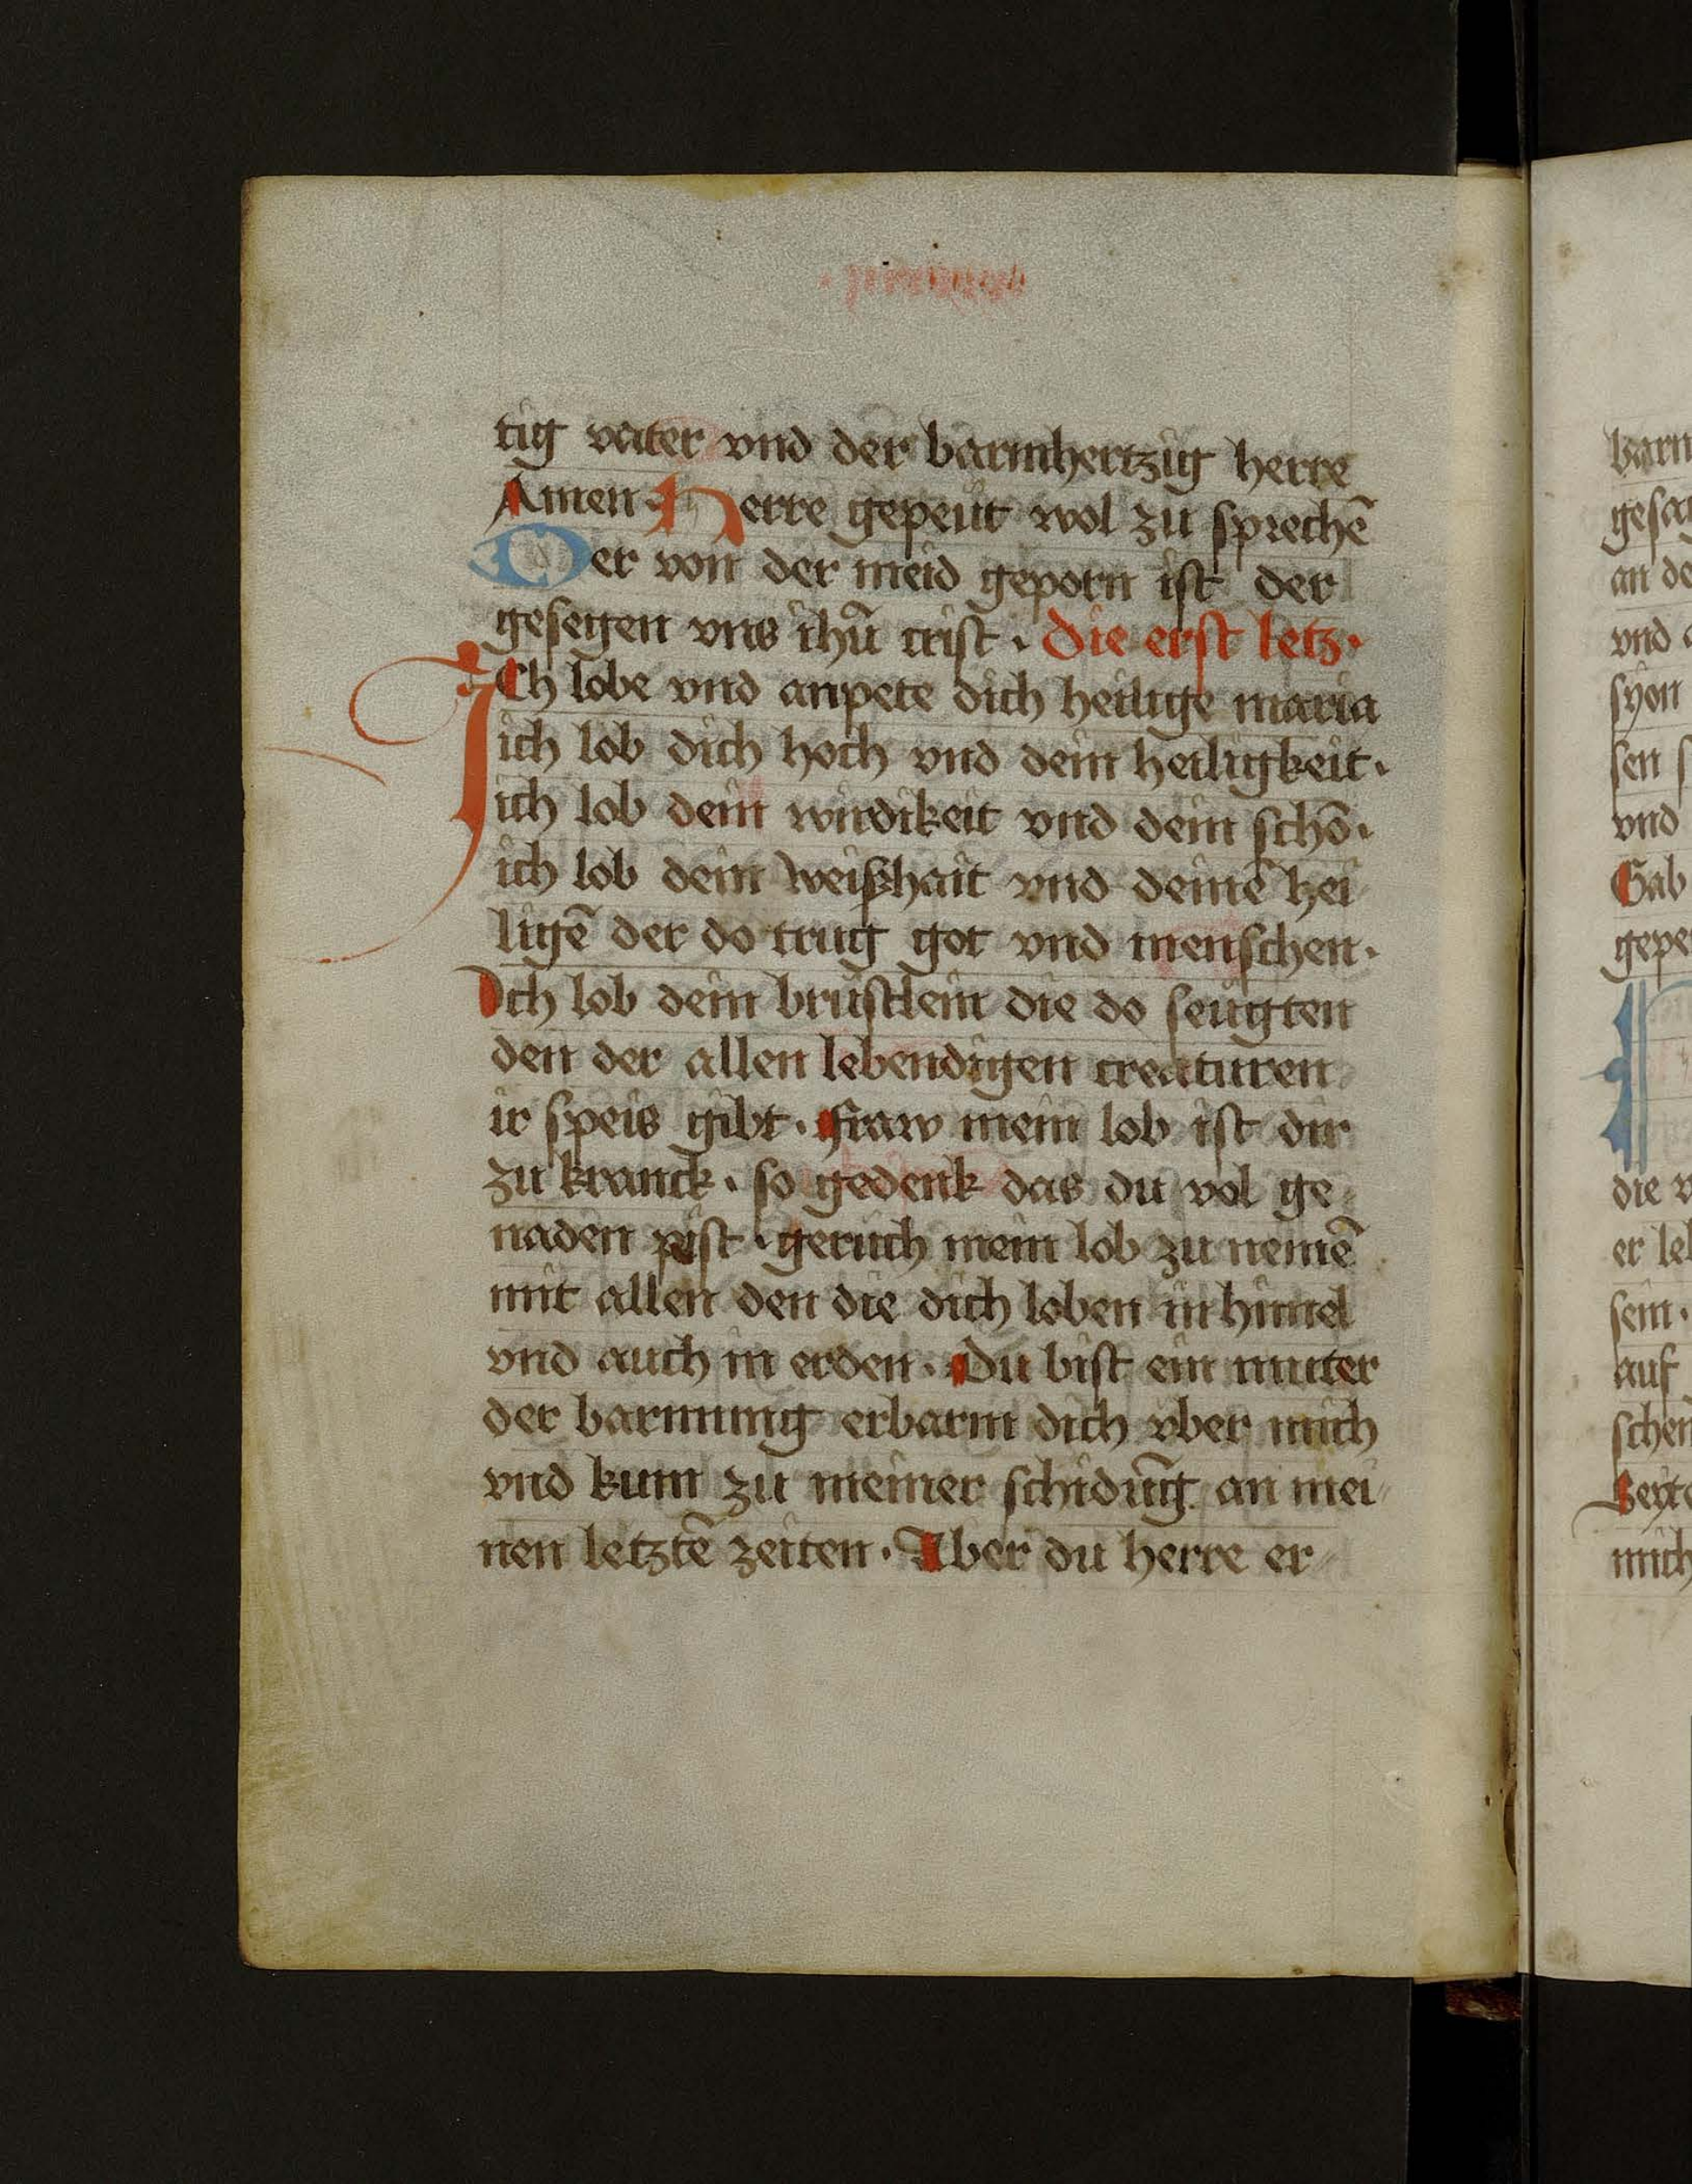 tig vater vnd der barmhertzig herre
Amen. Herre gepeut wol zu sprechē
Der von der meid geporn ist der
gesegen vns ihū crist. Die erst letz.
ICh lobe vnd anpete dich heilige maria
ich lob dich hoch vnd dein heiligkeit.
ich lob dein wirdikeit vnd dein schō.
ich lob dein weißhait vnd deinē hei
ligē der do trug got vnd menschen.
Ich lob dein brustlein die do seugten
den der allen lebendigen creaturen
ir speis gibt. Fraw mein lob ist dir
zu kranck. so gedenk das du vol ge
naden pist. geruch mein lob zu nemē
mit allen den die dich loben in himel
vnd auch in erden. Du bist ein muter
der barmung erbarm dich vber mich
vnd kum zu meiner schidūg an mei
nen letztē zeiten. Aber du herre er
barm
gesa
an de
vnd
syon
sen s
vnd
Gab
gepe
die v
er leb
sein.
auf
schen
Beyt
mich